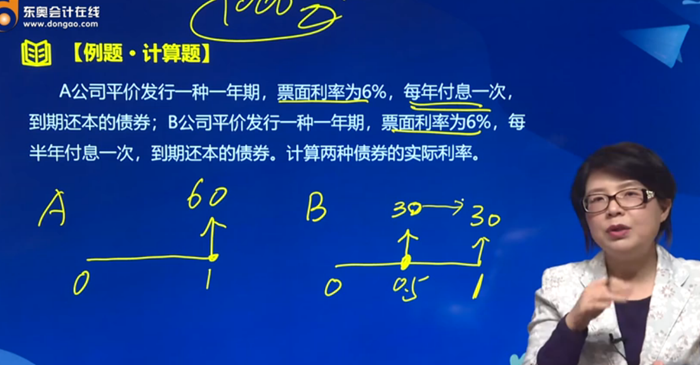 东奥会计在线
www.dongao.com
1000
【例题·计算题】
A公司平价发行一种一年期，票面利率为6%，每年付息一次，
到期还本的债券；B公司平价发行一种一年期，票面利率为6%，每
半年付息一次，到期还本的债券。计算两种债券的实际利率。
A 60 B 30 30
0 1 0 0.5 1